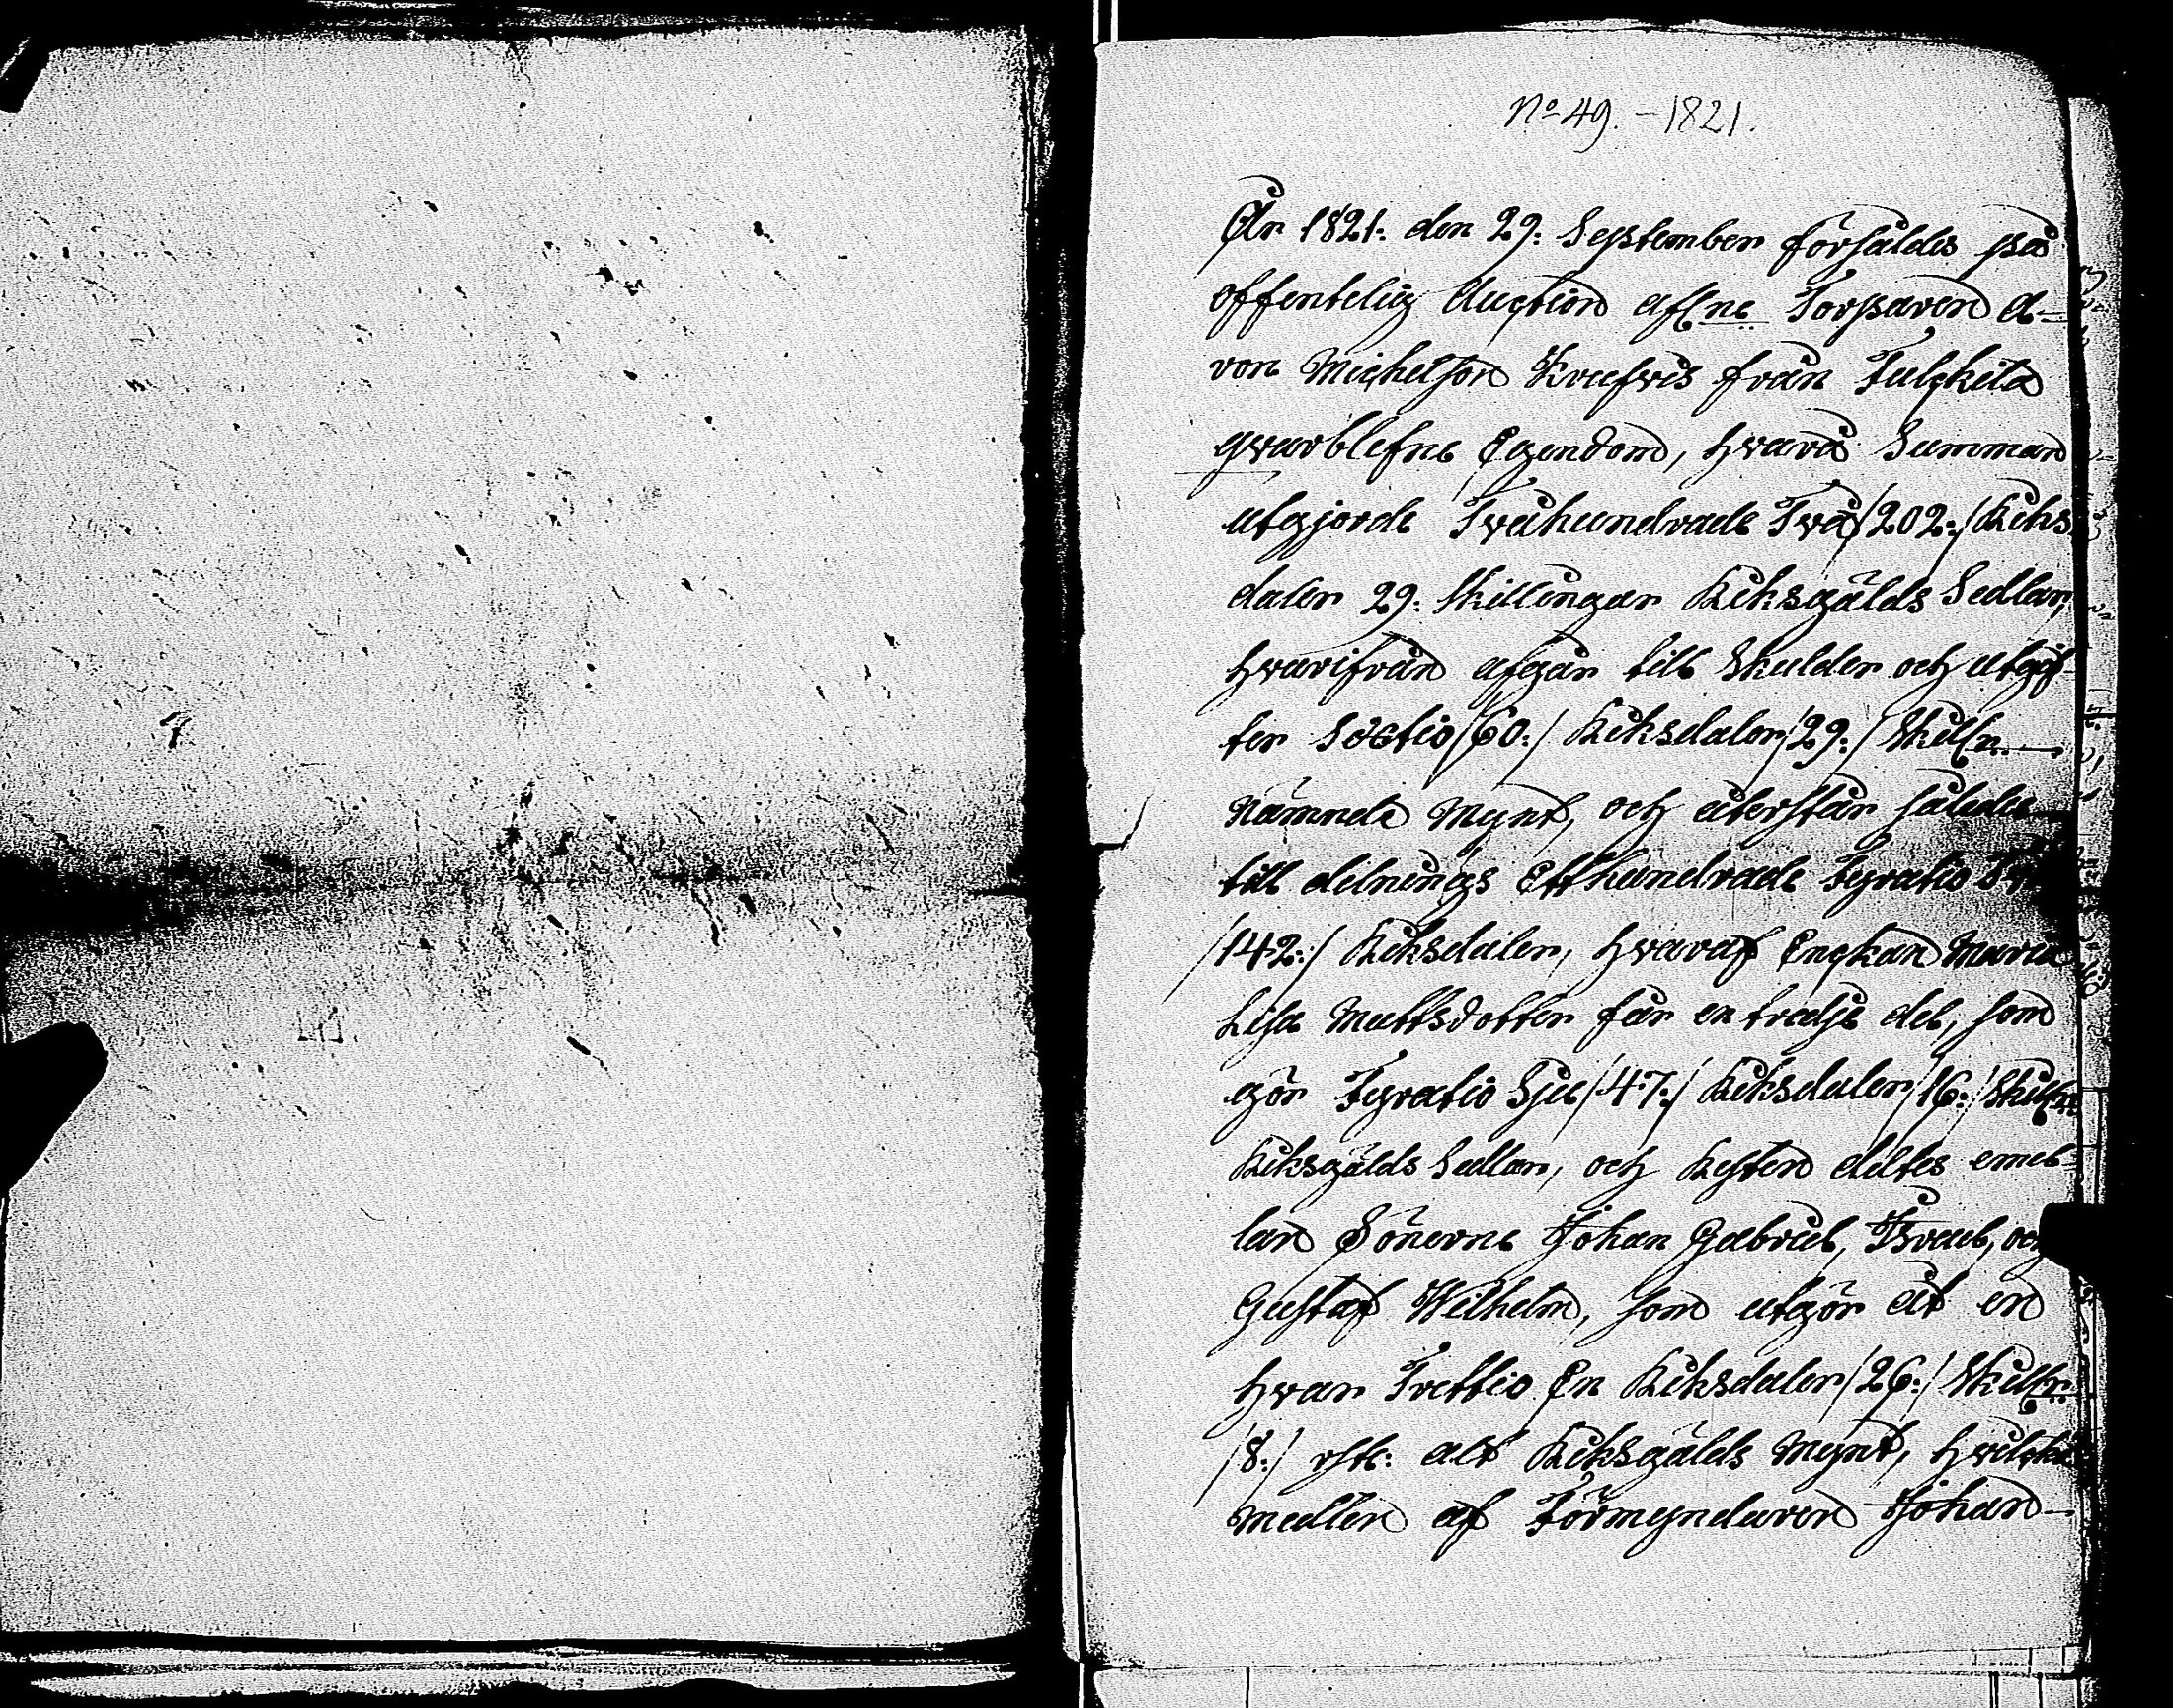 No 49. - 1821.
År 1821. den 29: September försåldes på
offentelig Auction afl:ne Torparen A-
ron Michelson Krufvis från Julkila
qvarblefne Egendom, hvara Summan
utgjorde Tvåhundrade Två /202:/ Riks
daler 29: Skillingar Riksgälds Sedlar,
hvarifrån afgår till Skulder och utgif
ter Sextio /60:/ Riksdaler /29:/ Skill:r
nämnde Mynt, och återstår således
till delnings Etthundrade Fyratio
/142:/ Riksdaler, hvaraf Enckan Maria
Lisa Mattsdotter får en tredje del, som
gör Fyratio Sju /47:/ Riksdaler /16:/ Skill:r
Riksgälds Sedlar, och Resten deltes emel-
lan Sönerne Johan Gabriel, Israel, och
Gustaf Wilhelm, som utgör åt en
hvar Trettio En Riksdaler /26:/ Skill:r
/8:/ rst: alt Riksgälds Mynt, hvilcka
medlen af Förmyndaren Johan